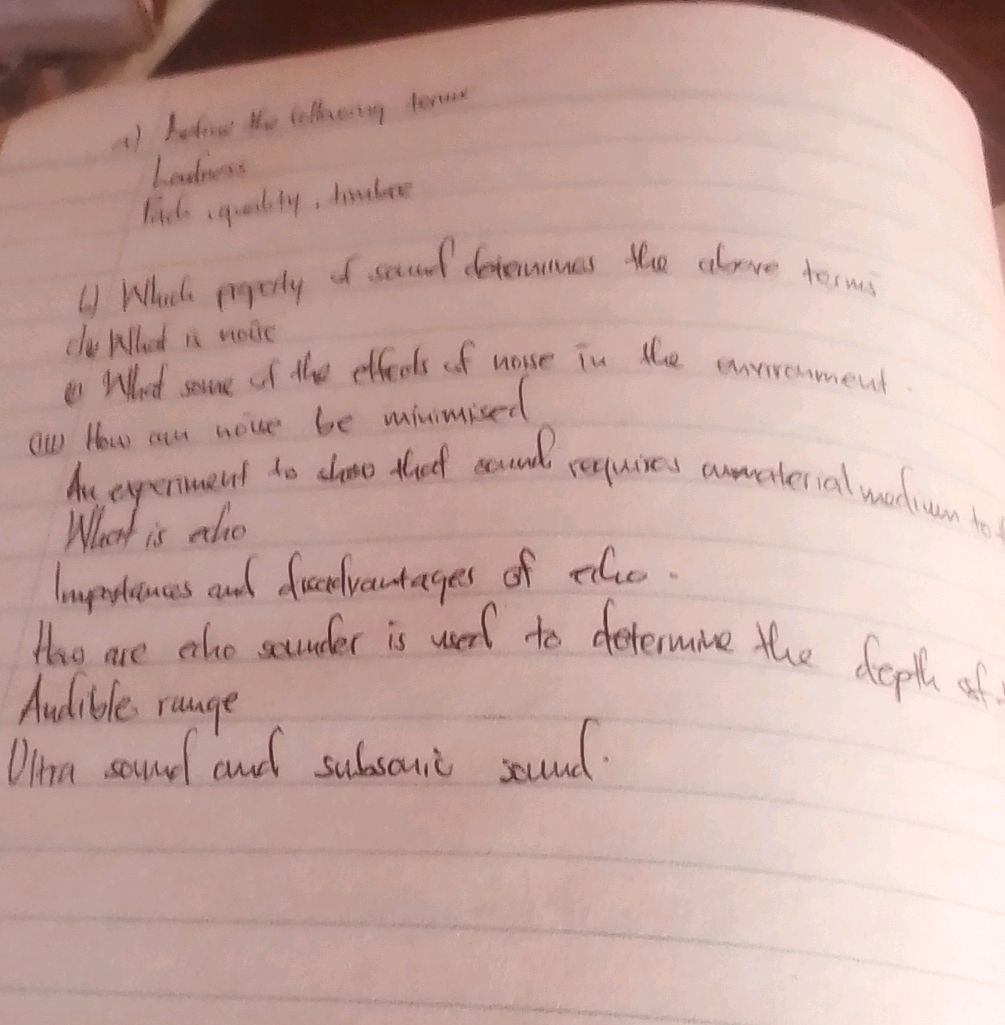 a) Define the following terms
Loudness
Pitch, quality, timbre
b) Which property of sound determines the above terms
What is noise
What some of the effects of noise in the environment.
(iii) How can noise be minimised
An experiment to show that sound requires a material medium to
What is echo
Importances and disadvantages of echo.
How are echo sounder is used to determine the depth of
Audible range
Ultra sound and subsonic sound.